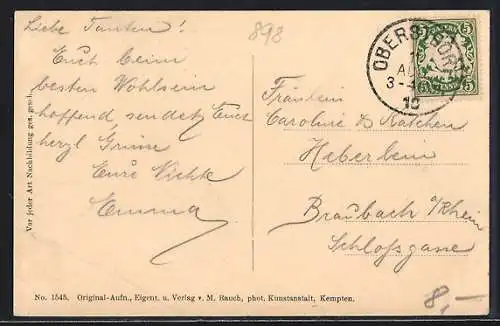 Liebe Tanten!
Euch beim
besten Wohlsein
hoffend sendet Euch
herzl Grüsse
Eure Nichte
Emma
893
OBERSTDORF
AU
3-4
10
BAYERN
5 5
5 5
Fräulein
Caroline & Kätchen
Heberlein
Braubach a/Rhein
Schlossgasse
8,-
Vor jeder Art Nachbildung ges. gesch.
No. 1545. Original-Aufn., Eigent. u. Verlag v. M. Rauch, phot. Kunstanstalt, Kempten.